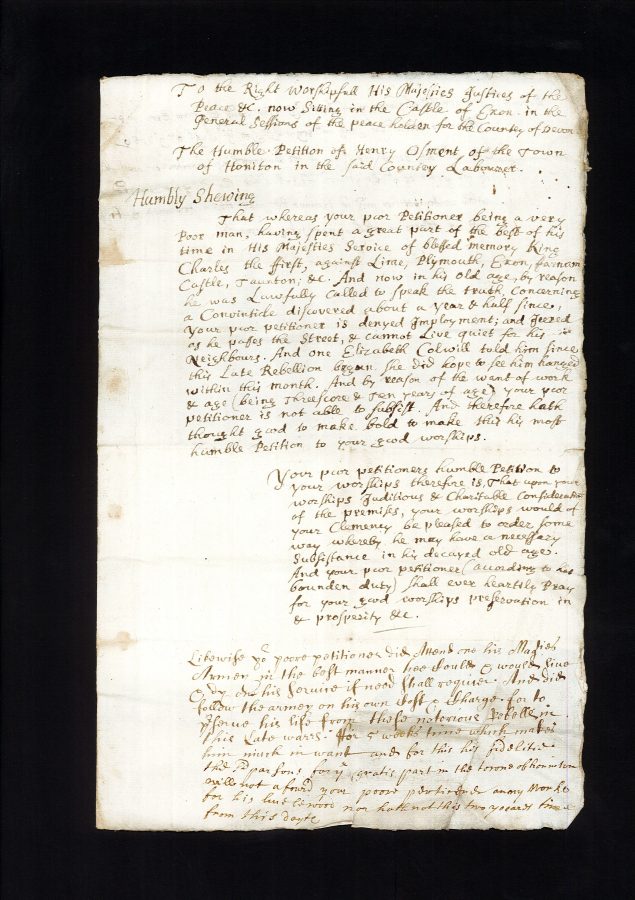 To the Right Worshipfull His Majesties Justices of the
Peace &c. now Sitting in the Castle of Exon. in the
General Sessions of the peace holden for the County of Devon
The Humble Petition of Henry Osment of the Town
of Honiton in the said Countey Labourer.
Humbly Shewing
That whereas your poor Petitioner being a very
Poor man, having spent a great part of the best of his
time in His Majesties Service of blessed memory King
Charles the ffirst, against Lime, Plymouth, Exon, farnam
Castle, Taunton, &c. And now in his old age, by reason
he was Lawfully Called to speak the truth, Concerning
a Conventicle discovered about a year & half since,
Your poor petitioner is denyed Imployment; and Jeered
as he passes the Street, & cannot Live quiet for his
Neighbours. And one Elizabeth Colwill told him since
this Late Rebellion began she did hope to see him hanged
within this month. And by reason of the want of work
& age (being Threscore & Ten years of age) your poor
petitioner is not able to subsist. And therefore hath
thought good to make bold to make this his most
humble Petition to your good worships.
Your poor petitioners humble Petition to
your worships therefore is, That upon your
worships Juditious & Charitable Consideration
of the premises, your worships would of
your Clemency be pleased to order some
way whereby he may have a necessary
Subsistance in his decayed old age.
And your poor petitioner (according to his
bounden duty) shall ever heartily Pray
for your good worships preservation in
& prosperity &c.
Likewise yr poore petitioner did Attend one his Magties
Armey in the best manner hee Could & would live
& dy one his Service if need shall require And did
follow the armey on his own Cost & Charge for to
pserve his life from these notorious Rebells in
this Late warrs for 5 weeks time which makes
him much in want and for this his fidelitie
the parsons for ye gratis part in the towne of honiton
will not aford your poore petitioner anny Worke
for his livelewood nor hath not this two yeares time
from this dayte